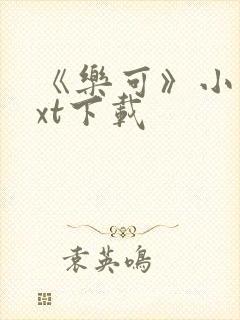 《樂可》小
xt下載
袁英鳴